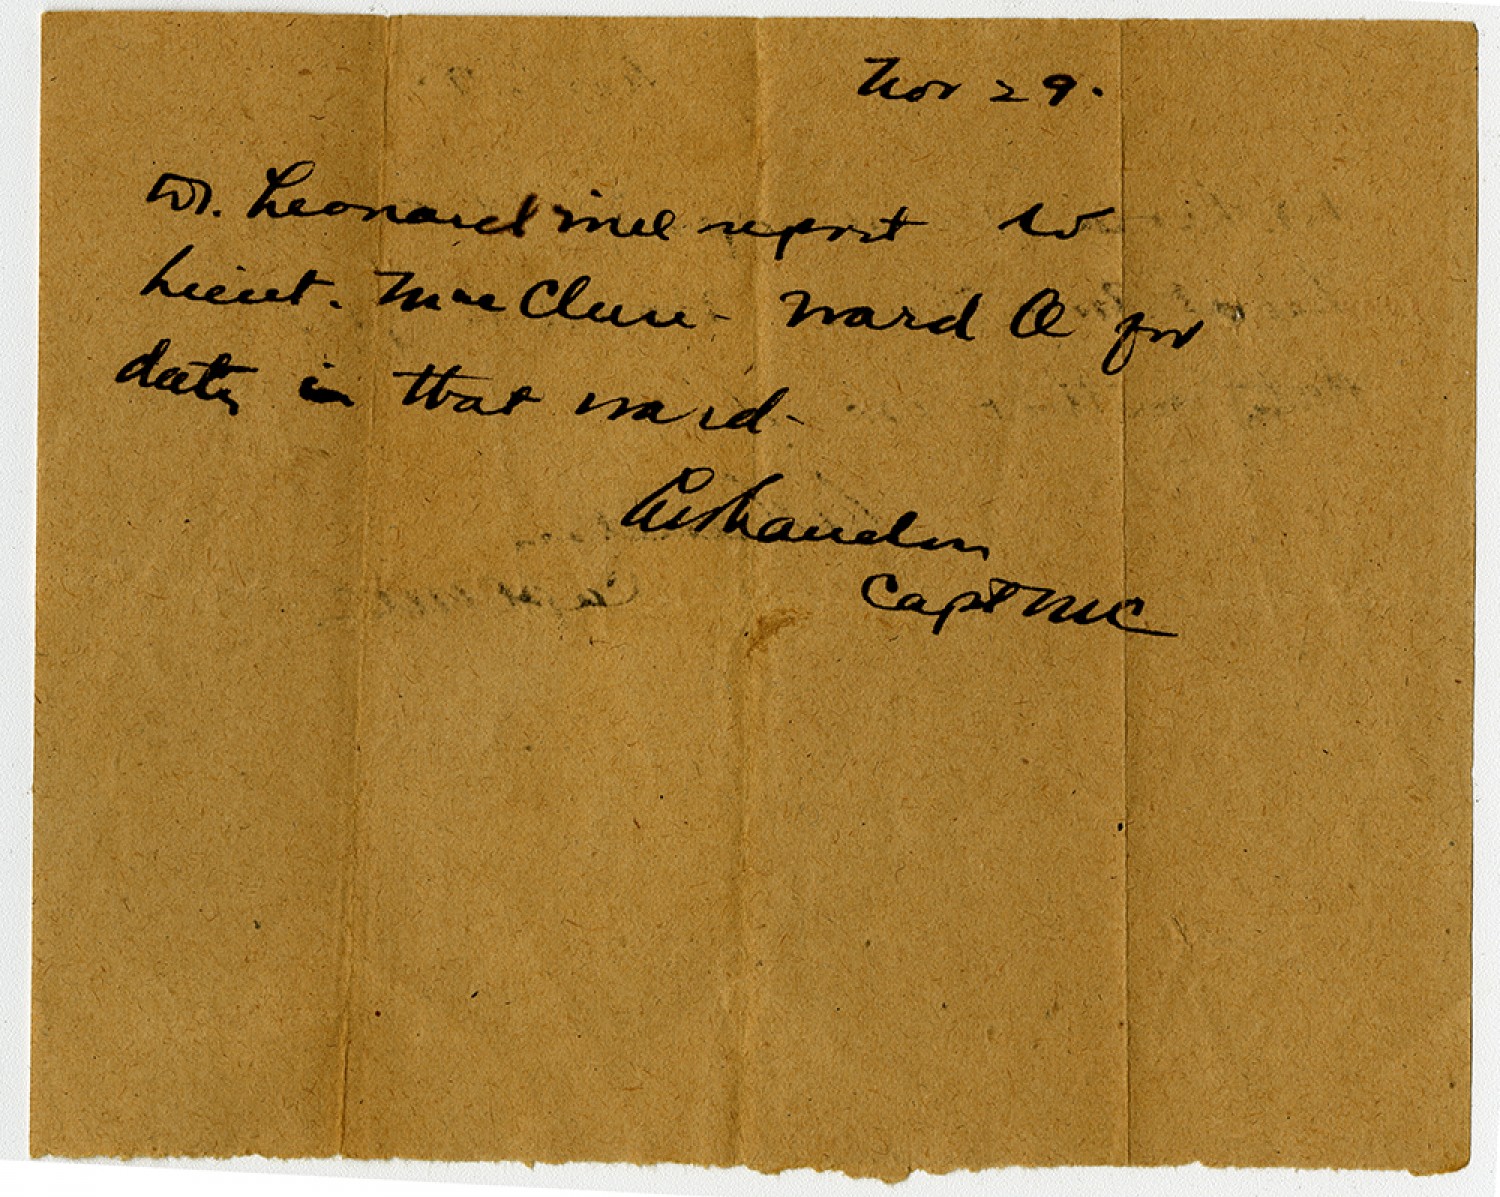 Nov 29.
Dr. Leonard will report to
Lieut. MacClure - Ward O for
duty in that ward -
Capt MC